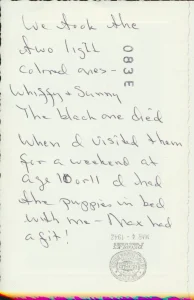 We took the
two light
colored ones -
Whiffy + Sunny
The black one died
When I visited them
for a weekend at
age 10 or 11 I had
the puppies in bed
with me - Max had
a fit!